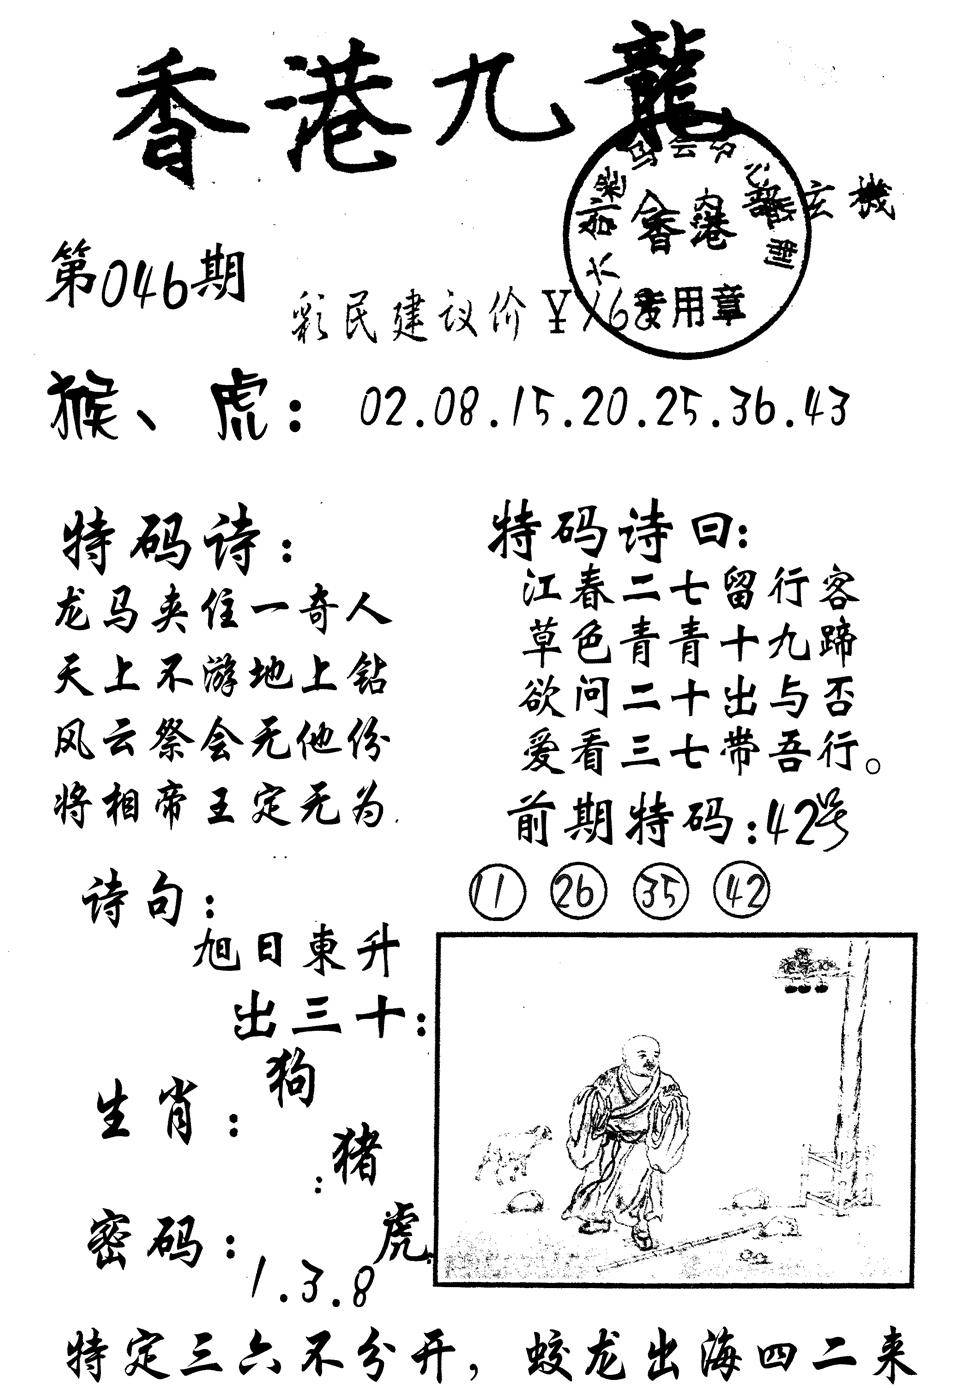 香港九龍
玄機
香港
专用章
第046期
彩民建议价￥168
猴、虎：02.08.15.20.25.36.43
特码诗：
龙马夹住一奇人
天上不游地上钻
风云祭会无他份
将相帝王定无为.
特码诗曰：
江春二七留行客
草色青青十九蹄
欲问二十出与否
爱看三七带吾行。
前期特码：42号
11 26 35 42
诗句：
旭日東升
出三十：
生肖：狗
：猪
虎.
密码：
1.3.8
特定三六不分开，蛟龙出海四二来